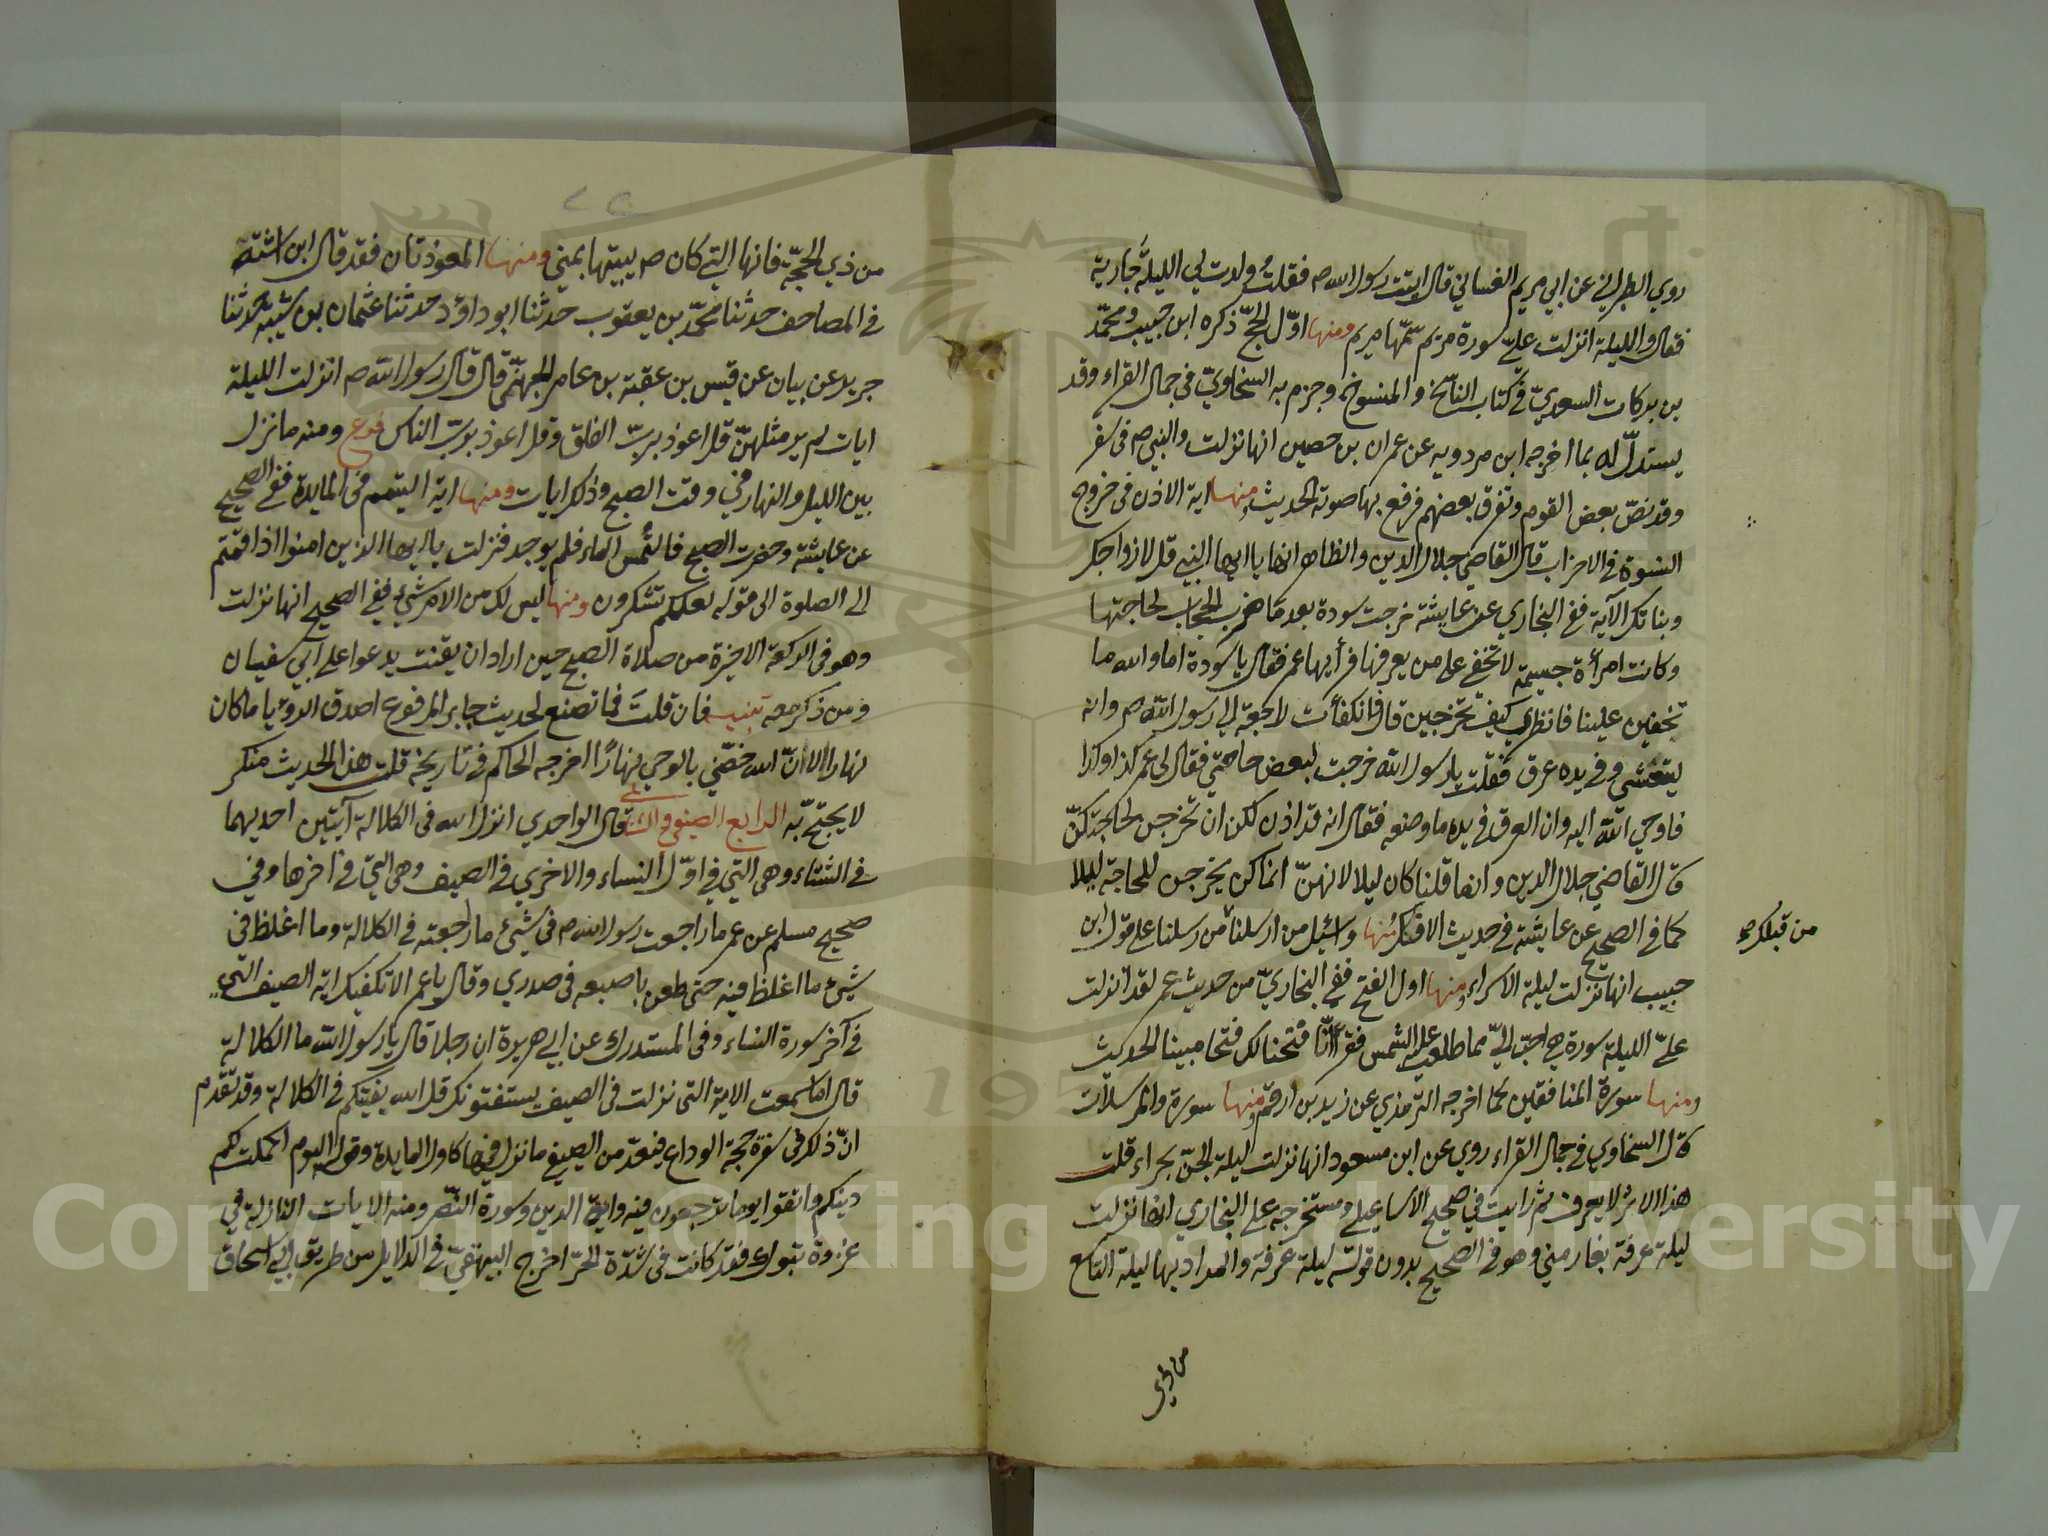 روي الطبراني عن ابي مريم الغساني قال اتيت رسول الله صم فقلت ولدت لي الليلة جارية
فقال والليلة انزلت علي سورة مريم سمّها مريم ومنها اوّل الحجّ ذكره ابن حبيب ومحمّد
بن بركات السعدي في كتاب الناسخ والمنسوخ وجزم به السخاويّ في جمال القراء وقد
يستدلّ له بما اخرجه ابن مردويه عن عمران بن حصين انها نزلت والنبي صم في سفر
وقد نصّ بعض القوم وتفرق بعضهم فرفع بها صوته الحديث ومنها اية الاذن في خروج
النسوة في الاحزاب قال القاضي جلال الدين والظاهر انها يا ايها النبي قل لازواجك
وبناتك الآية ففي البخاري عن عايشة خرجت سودة بعد ما ضرب الحجاب لحاجتها
وكانت امرأة جسيمة لا تخفى على من يعرفها فرأيها عمر فقال يا سودة اما والله ما
تخفين علينا فانظري كيف تخرجين قال فانكفأت راجعة الي رسول الله صم وانه
ليتعشي وفي يده عرق فقلت يا رسول الله خرجت لبعض حاجتي فقال لي عمر كذا وكذا
فاوحي الله اليه وان العرق في يده ما وضعه فقال انه قد اذن لكن ان تخرجن لحاجتكنّ
قال القاضي جلال الدين وانما قلنا كان ليلا لانهنّ انما كن يخرجن للحاجة ليلا
كما في الصحيح عن عايشة في حديث الافك ومنها واسئل من ارسلنا من رسلنا على قول ابن
من قبلك صح
حبيب انها نزلت ليلة الاسراء ومنها اول الفتح ففي البخاريّ من حديث عمر لقد انزلت
عليّ الليلة سورة هي احبّ اليّ مما طلعت عليه الشمس فقرأ انّا فتحنا لك فتحا مبينا الحديث
ومنها سورة المنافقين كما اخرجه الترمذي عن زيد بن ارقم ومنها سورة والمرسلات
قال السخاوي في جمال القراء روي عن ابن مسعود انها نزلت ليلة الجنّ بحراء قلت
هذا الاثر لا يعرف ثم رايت في صحيح الاسماعيلي ومستخرجه على البخاري انها نزلت
ليلة عرفة بغار مني وهو في الصحيح بدون قوله ليلة عرفة والمراد بها ليلة التاسع
من ذي
من ذي الحجّة فانها التي كان صم يبيتها بمني ومنها المعوذتان فقد قال ابن اشتة
في المصاحف حدثنا محمّد بن يعقوب حدثنا ابو داؤد حدثنا عثمان بن شيبه حدثنا
جرير عن بيان عن قيس بن عقبة بن عامر الجهنّي قال قال رسول الله صم انزلت الليلة
ايات لم ير مثلهنّ قل اعوذ بربّ الفلق وقل اعوذ بربّ الناس فرع ومنه ما نزل
بين الليل والنهار في وقت الصبح وذلك ايات ومنها اية التيمم في المايدة ففي الصحيح
عن عايشة وحضرت الصبح فالتمس الماء فلم يوجد فنزلت يا ايها الذين امنوا اذا قمتم
الى الصلوة الى قوله لعلكم تشكرون ومنها ليس لك من الامر شيء ففي الصحيح انها نزلت
وهو في الركعة الاخيرة من صلاة الصبح حين اراد ان يقنت يدعوا على ابي سفيان
ومن ذكر معه تنبيه فان قلت فما تصنع لحديث جابر المرفوع اصدق الرؤيا ما كان
نهارا لانّ الله خصّني بالوحي نهارًا اخرجه الحاكم في تاريخه قلت هذا الحديث منكر
لا يحتج به الرابع الصيفي والشتائي قال الواحدي انزل الله في الكلالة آيتين احديهما
في الشتاء وهي التي في اوّل النساء والاخري في الصيف وهي التي في اخرها وفي
صحيح مسلم عن عمر ما راجعت رسول الله صم في شيء ما راجعته في الكلالة وما اغلظ في
شيء ما اغلظ فيه حتى طعن باصبعه في صدري وقال يا عمر الا تكفيك اية الصيف التي
في آخر سورة النساء وفي المستدرك عن ابي هريرة ان رجلا قال يا رسول الله ما الكلالة
قال اما سمعت الاية التي نزلت في الصيف يستفتونك قل الله يفتيكم في الكلالة وقد تقدم
انّ ذلك في سفرة حجة الوداع فيعدّ من الصيفي ما نزل فيها كاول المايدة وقوله اليوم اكملت لكم
دينكم واتقوا يوما ترجعون فيه واية الدين وسورة النصر ومنه الايات النازلة في
غزوة تبوك فقد كانت في شدّة الحرّ اخرج البيهقيّ في الدلايل من طريق ابي اسحاق
Copyright © King Saud University